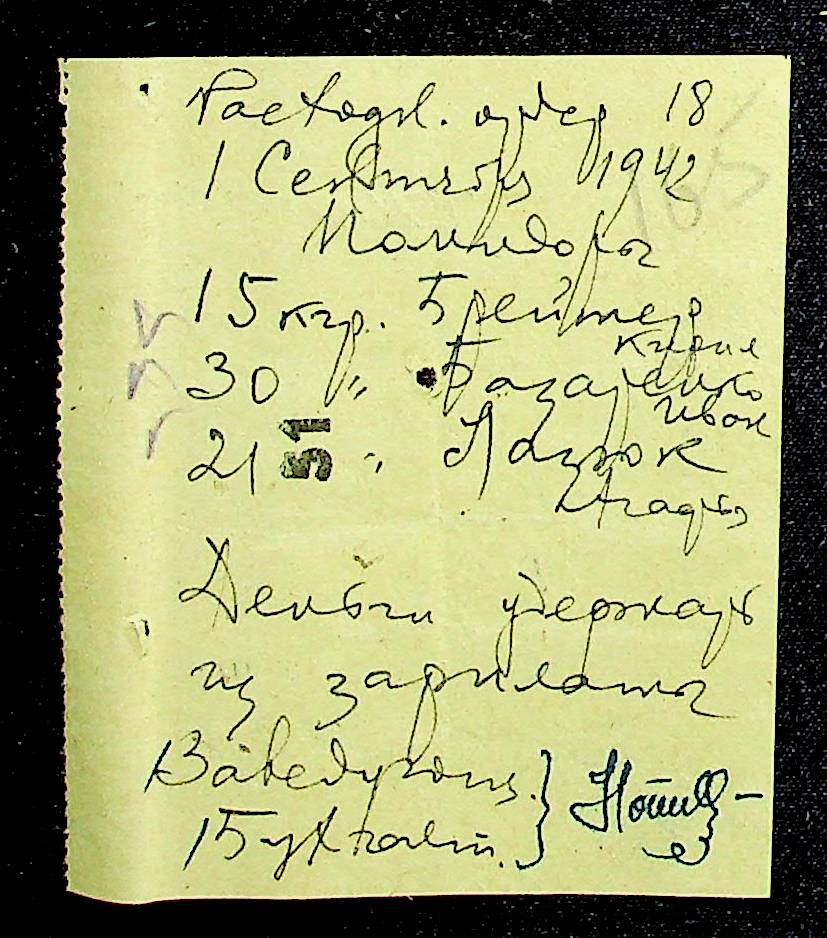 Расходн. ордер 18
1 Сентября 1942
Помидоры
15 кгр. Бреймер
Кирил
30 " Базаренко
Иван
21 51 " Пацюк
Деньги удержать
из зарплаты
Заведующ.
Бухгалт.